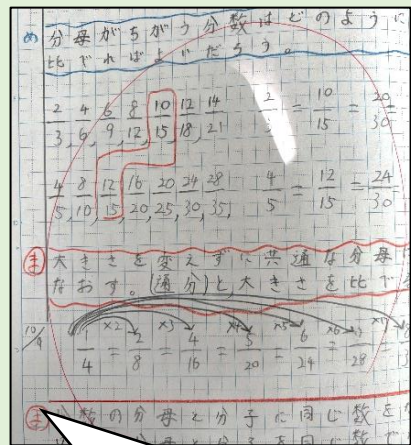 め 分母がちがう分数はどのように
比べればよいだろう。
2/3, 4/6, 6/9, 8/12, 10/15, 12/18, 14/21 2/3 = 10/15 = 20/30
4/5, 8/10, 12/15, 16/20, 20/25, 24/30, 28/35, 4/5 = 12/15 = 24/30
ま 大きさを変えずに共通な分母に
なおす。(通分)と大きさを比べ
×2 ×3 ×4 ×5 ×6 ×7
10/9 /4 = 2/8 = 4/16 = 5/20 = 6/24 = /28 =
ま 分数の分母と分子に同じ数を